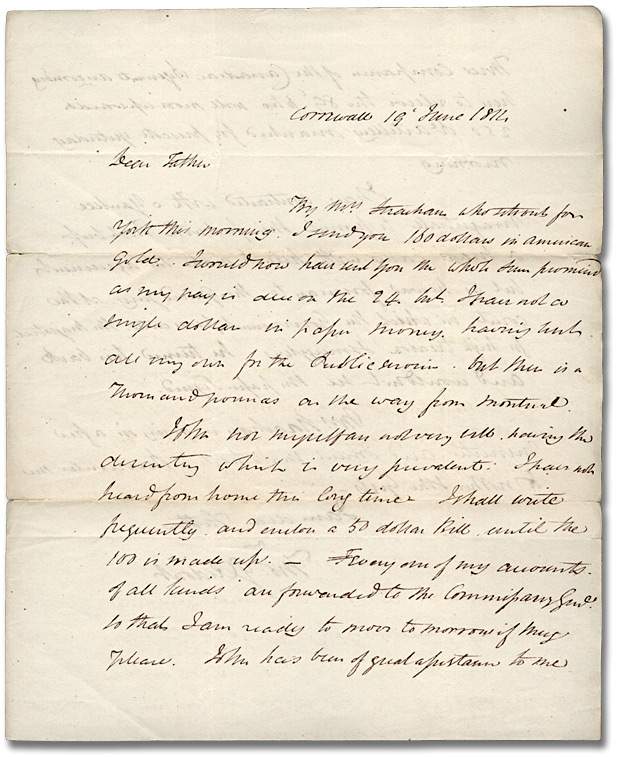 Cornwall 19th June 1814
Dear Father
By Mrs. Strachan who set out for
York this morning I send you 160 dollars in american
Gold. I would now have sent you the whole sum promised
as my pay is due on the 24th but I have not a
single dollar in paper money having lent
all my own for the Public service but there is a
Thousand pounds on the way from montreal.
John nor myself are not very well, having the
dysentery which is very prevalent. I have not
heard from home this long time I shall write
frequently and enclose a 50 dollar Bill until the
100 is made up. — Every one of my accounts
of all kinds are forwarded to the Commissary Genl.
so that I am ready to move tomorrow if they
please. John has been of great assistance to me